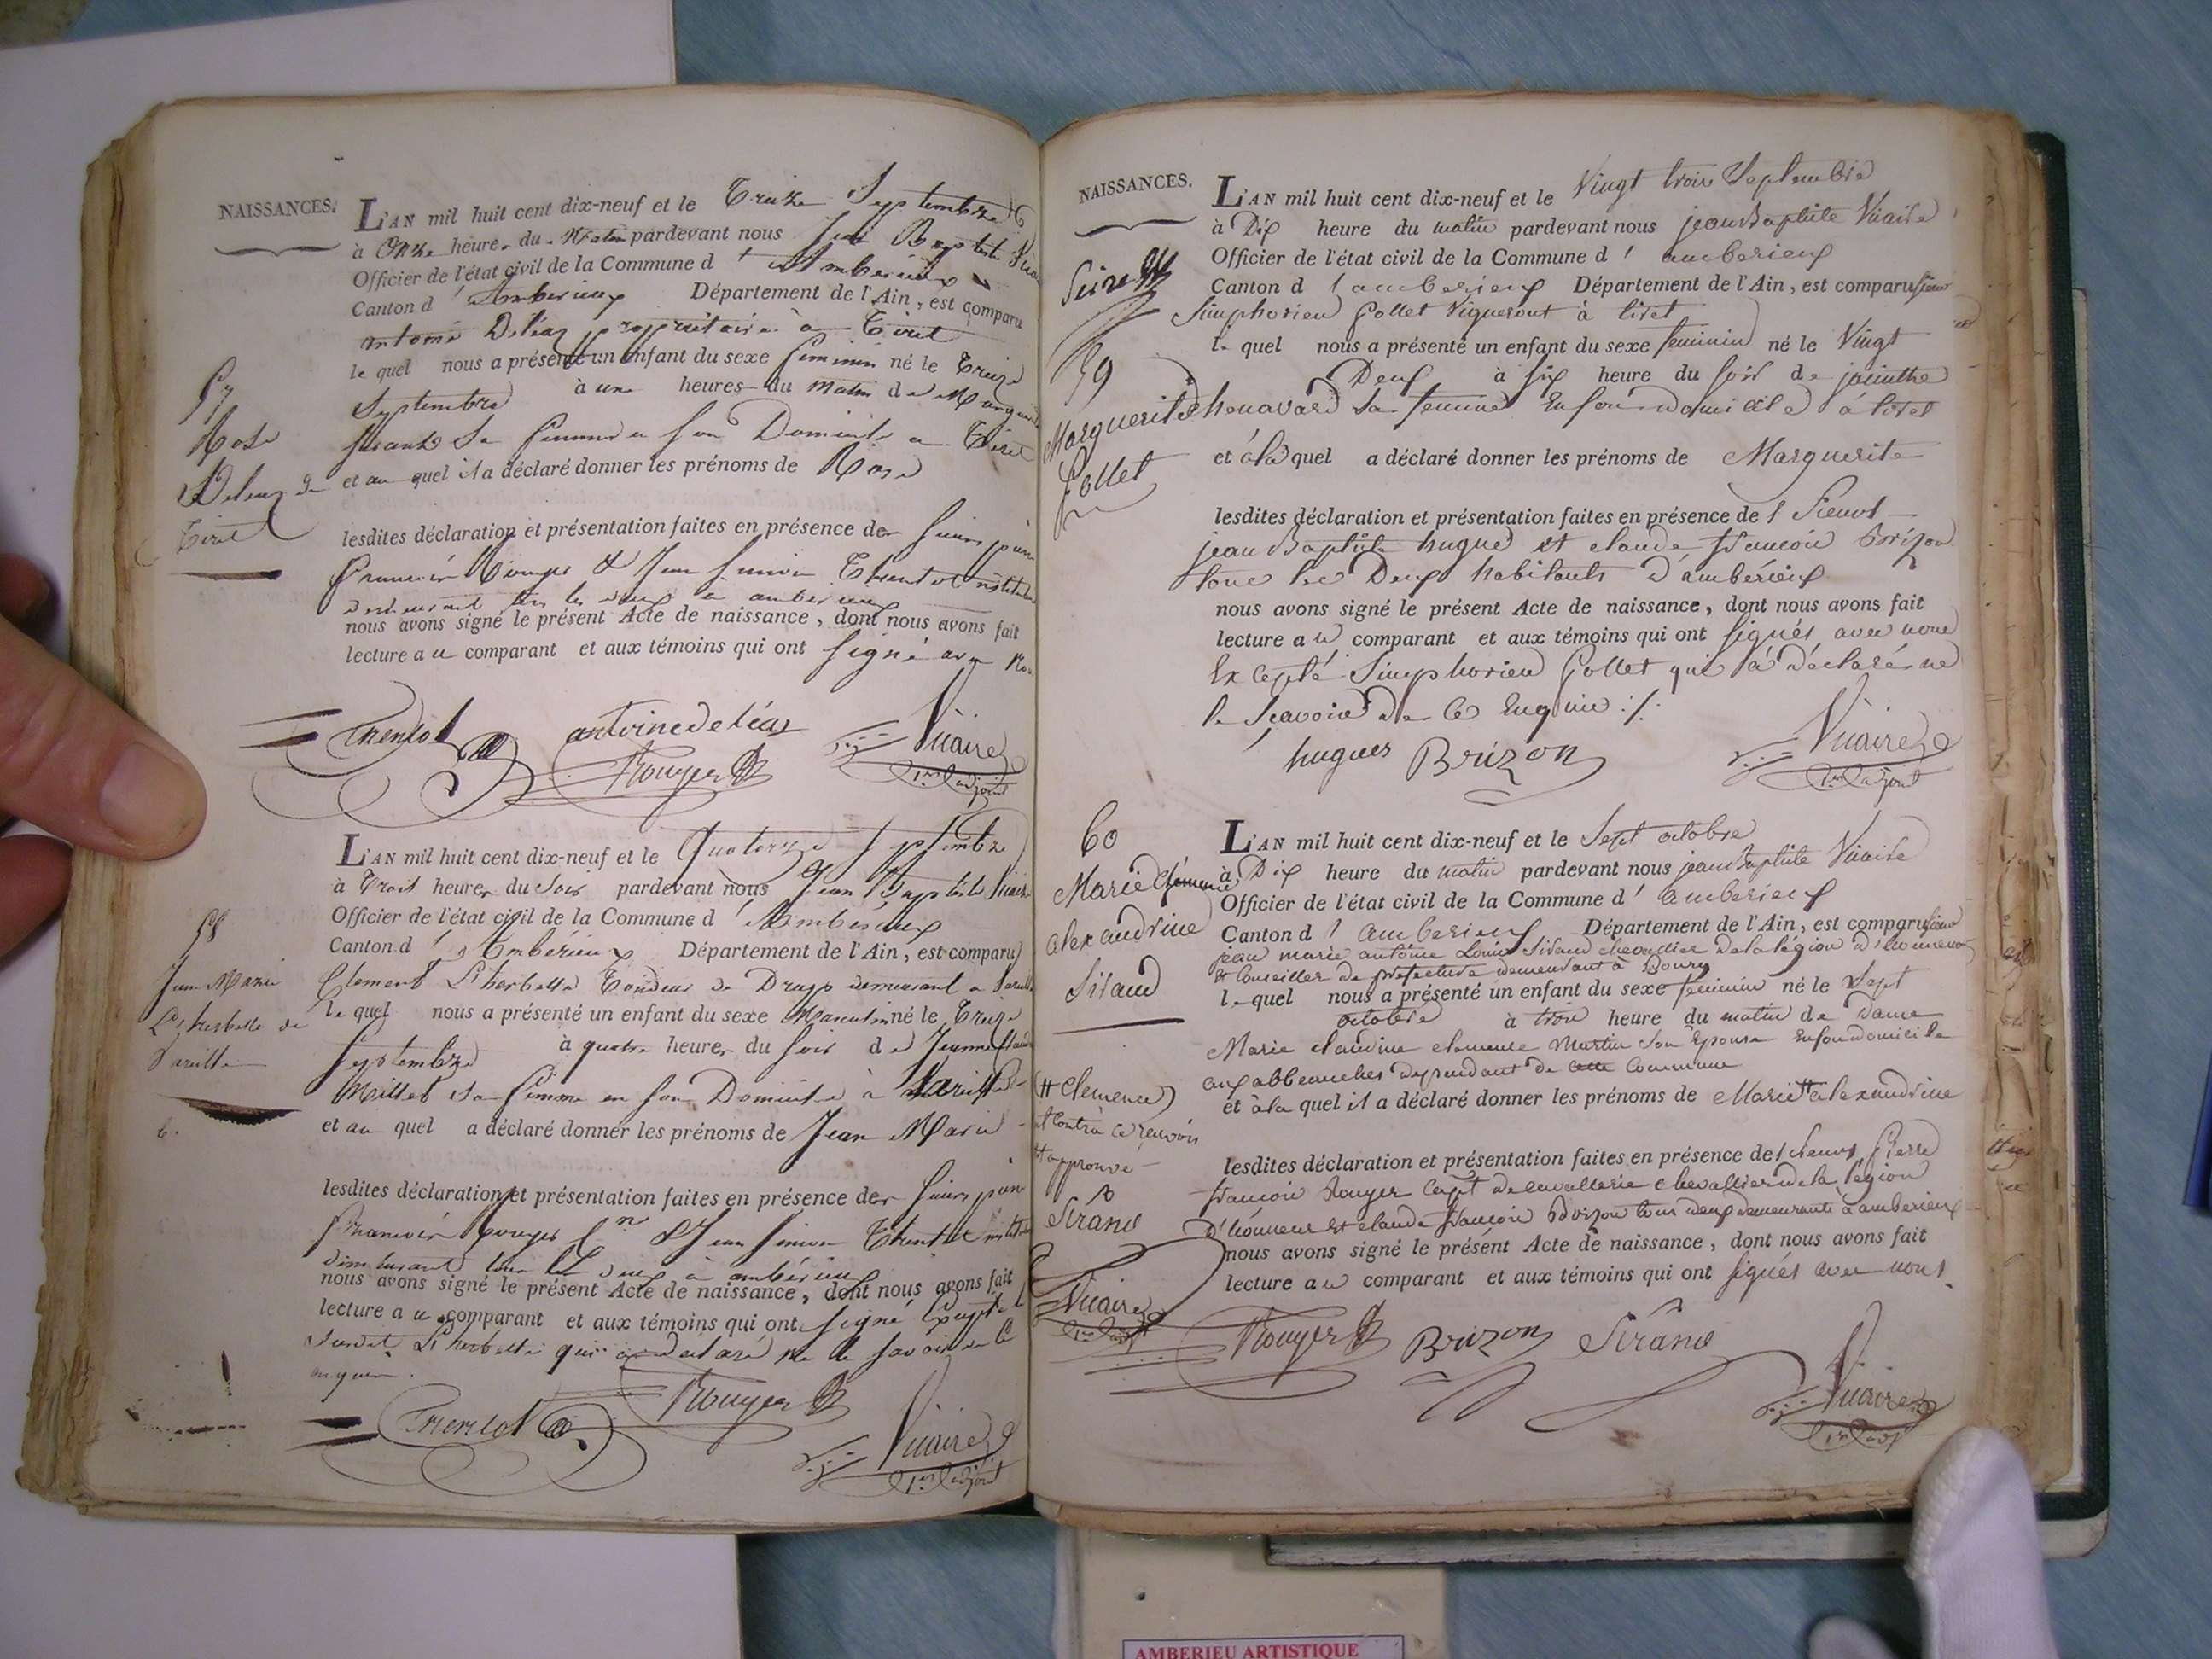 NAISSANCES.
L'AN mil huit cent dix-neuf et le Treize Septembre
à Onze heures du Matin pardevant nous Jean Baptiste
Officier de l'état civil de la Commune d' Amberieux
Canton d' Amberieux Département de l'Ain, est comparu
antoine Deléaz propriétaire à Tiret
le quel nous a présenté un enfant du sexe feminin né le Treize
Septembre à une heures du matin de
sa femme en son Domicile a Tiret
et au quel il a déclaré donner les prénoms de Rose
57
Rose
Deleaz de
Tiret
lesdites déclaration et présentation faites en présence des
francois Rouyer & Jean Trentot
demeurant tous les deux a amberieux
nous avons signé le présent Acte de naissance, dont nous avons fait
lecture au comparant et aux témoins qui ont signé avec Nous
Trentot antoine deléaz Vicaire
Rouyer 1er adjoint
L'AN mil huit cent dix-neuf et le Quatorze Septembre
à Trois heures du Soir pardevant nous Jean Baptiste Vicaire
Officier de l'état civil de la Commune d' Ambérieux
Canton d' Ambérieux Département de l'Ain, est comparu
Clement L'herbette Tondeur de Draps demeurant a
le quel nous a présenté un enfant du sexe Masculin né le Treize
Septembre à quatre heures du soir de Jeanne
Millet sa femme en son Domicile à
et au quel a déclaré donner les prénoms de Jean Marie
58
Jean Marie
L'herbette de
lesdites déclaration et présentation faites en présence des
francois Rouyer & Jean Trentot
demeurant tous les deux à ambérieux
nous avons signé le présent Acte de naissance, dont nous avons fait
lecture au comparant et aux témoins qui ont signé Excepté
L'herbette qui a déclaré ne le savoir de ce
enquis.
Trentot Rouyer Vicaire
1er adjoint
NAISSANCES.
L'AN mil huit cent dix-neuf et le Vingt trois Septembre
à Dix heure du matin pardevant nous jean Baptiste Vicaire
Officier de l'état civil de la Commune d' amberieux
Canton d' amberieux Département de l'Ain, est comparu sieur
Simphorien Gollet Vigneront à tiret
le quel nous a présenté un enfant du sexe feminin né le Vingt
Deux à six heure du soir de jacinthe
Chenavard sa femme En son domicile à tiret
et à la quel a déclaré donner les prénoms de Marguerite
59
Marguerite
Gollet
lesdites déclaration et présentation faites en présence des Sieurs
jean Baptiste hugue et claude francois Brizon
tous les Deux habitants d'ambérieux
nous avons signé le présent Acte de naissance, dont nous avons fait
lecture au comparant et aux témoins qui ont signés avec nous
Excepté Simphorien Gollet qui a déclaré ne
le Scavoir de ce Enquie ./.
hugues Brizon Vicaire
1er adjoint
L'AN mil huit cent dix-neuf et le Sept octobre
à Dix heure du matin pardevant nous jean Baptiste Vicaire
Officier de l'état civil de la Commune d' amberieux
Canton d' amberieux Département de l'Ain, est comparu sieur
jean marie antoine Louis Sirand chevallier de la légion d'honneur
et Conseiller de préfecture demeurant à Bourg
le quel nous a présenté un enfant du sexe feminin né le Sept
octobre à trois heure du matin de Dame
Marie claudine clemence Martin son Epouse En son domicile
aux abbeanches dépendant de cette Commune
et à la quel il a déclaré donner les prénoms de Marie # alexandrine
60
Marie Clémence
alexandrine
Sirand
# Clemence
approuvé
Sirand
Vicaire
1er adjt
lesdites déclaration et présentation faites en présence des sieurs Pierre
francois Rouyer Capt de cavallerie chevallier de la légion
D'honneur et claude francois Brizon tous deux demeurants à amberieux
nous avons signé le présent Acte de naissance, dont nous avons fait
lecture au comparant et aux témoins qui ont signés avec nous.
Rouyer Brizon Sirand Vicaire
1er adjt
AMBERIEU ARTISTIQUE